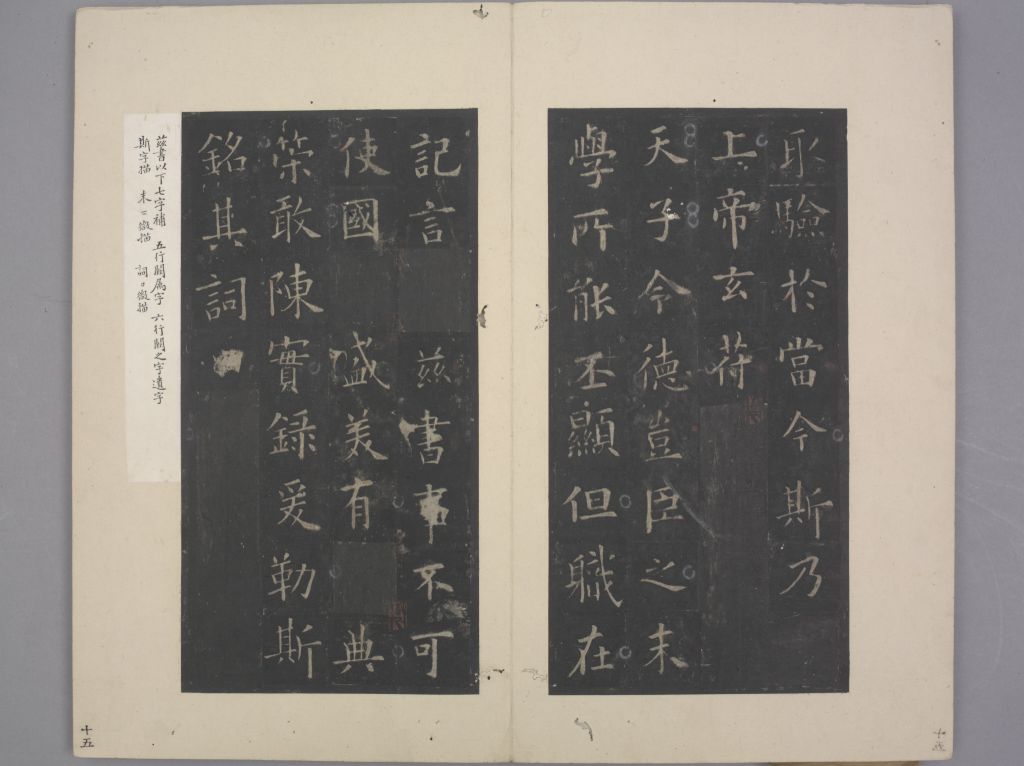 取驗於當今斯乃
上帝玄苻
天子令德豈臣之末
學所能丕顯但職在
記言茲書事不可
使國盛美有典
策敢陳實録爰勒斯
銘其詞
茲書以下七字補 五行闕属字 六行闕之字遺字
斯字描 末〻微描 詞曰微描
十五